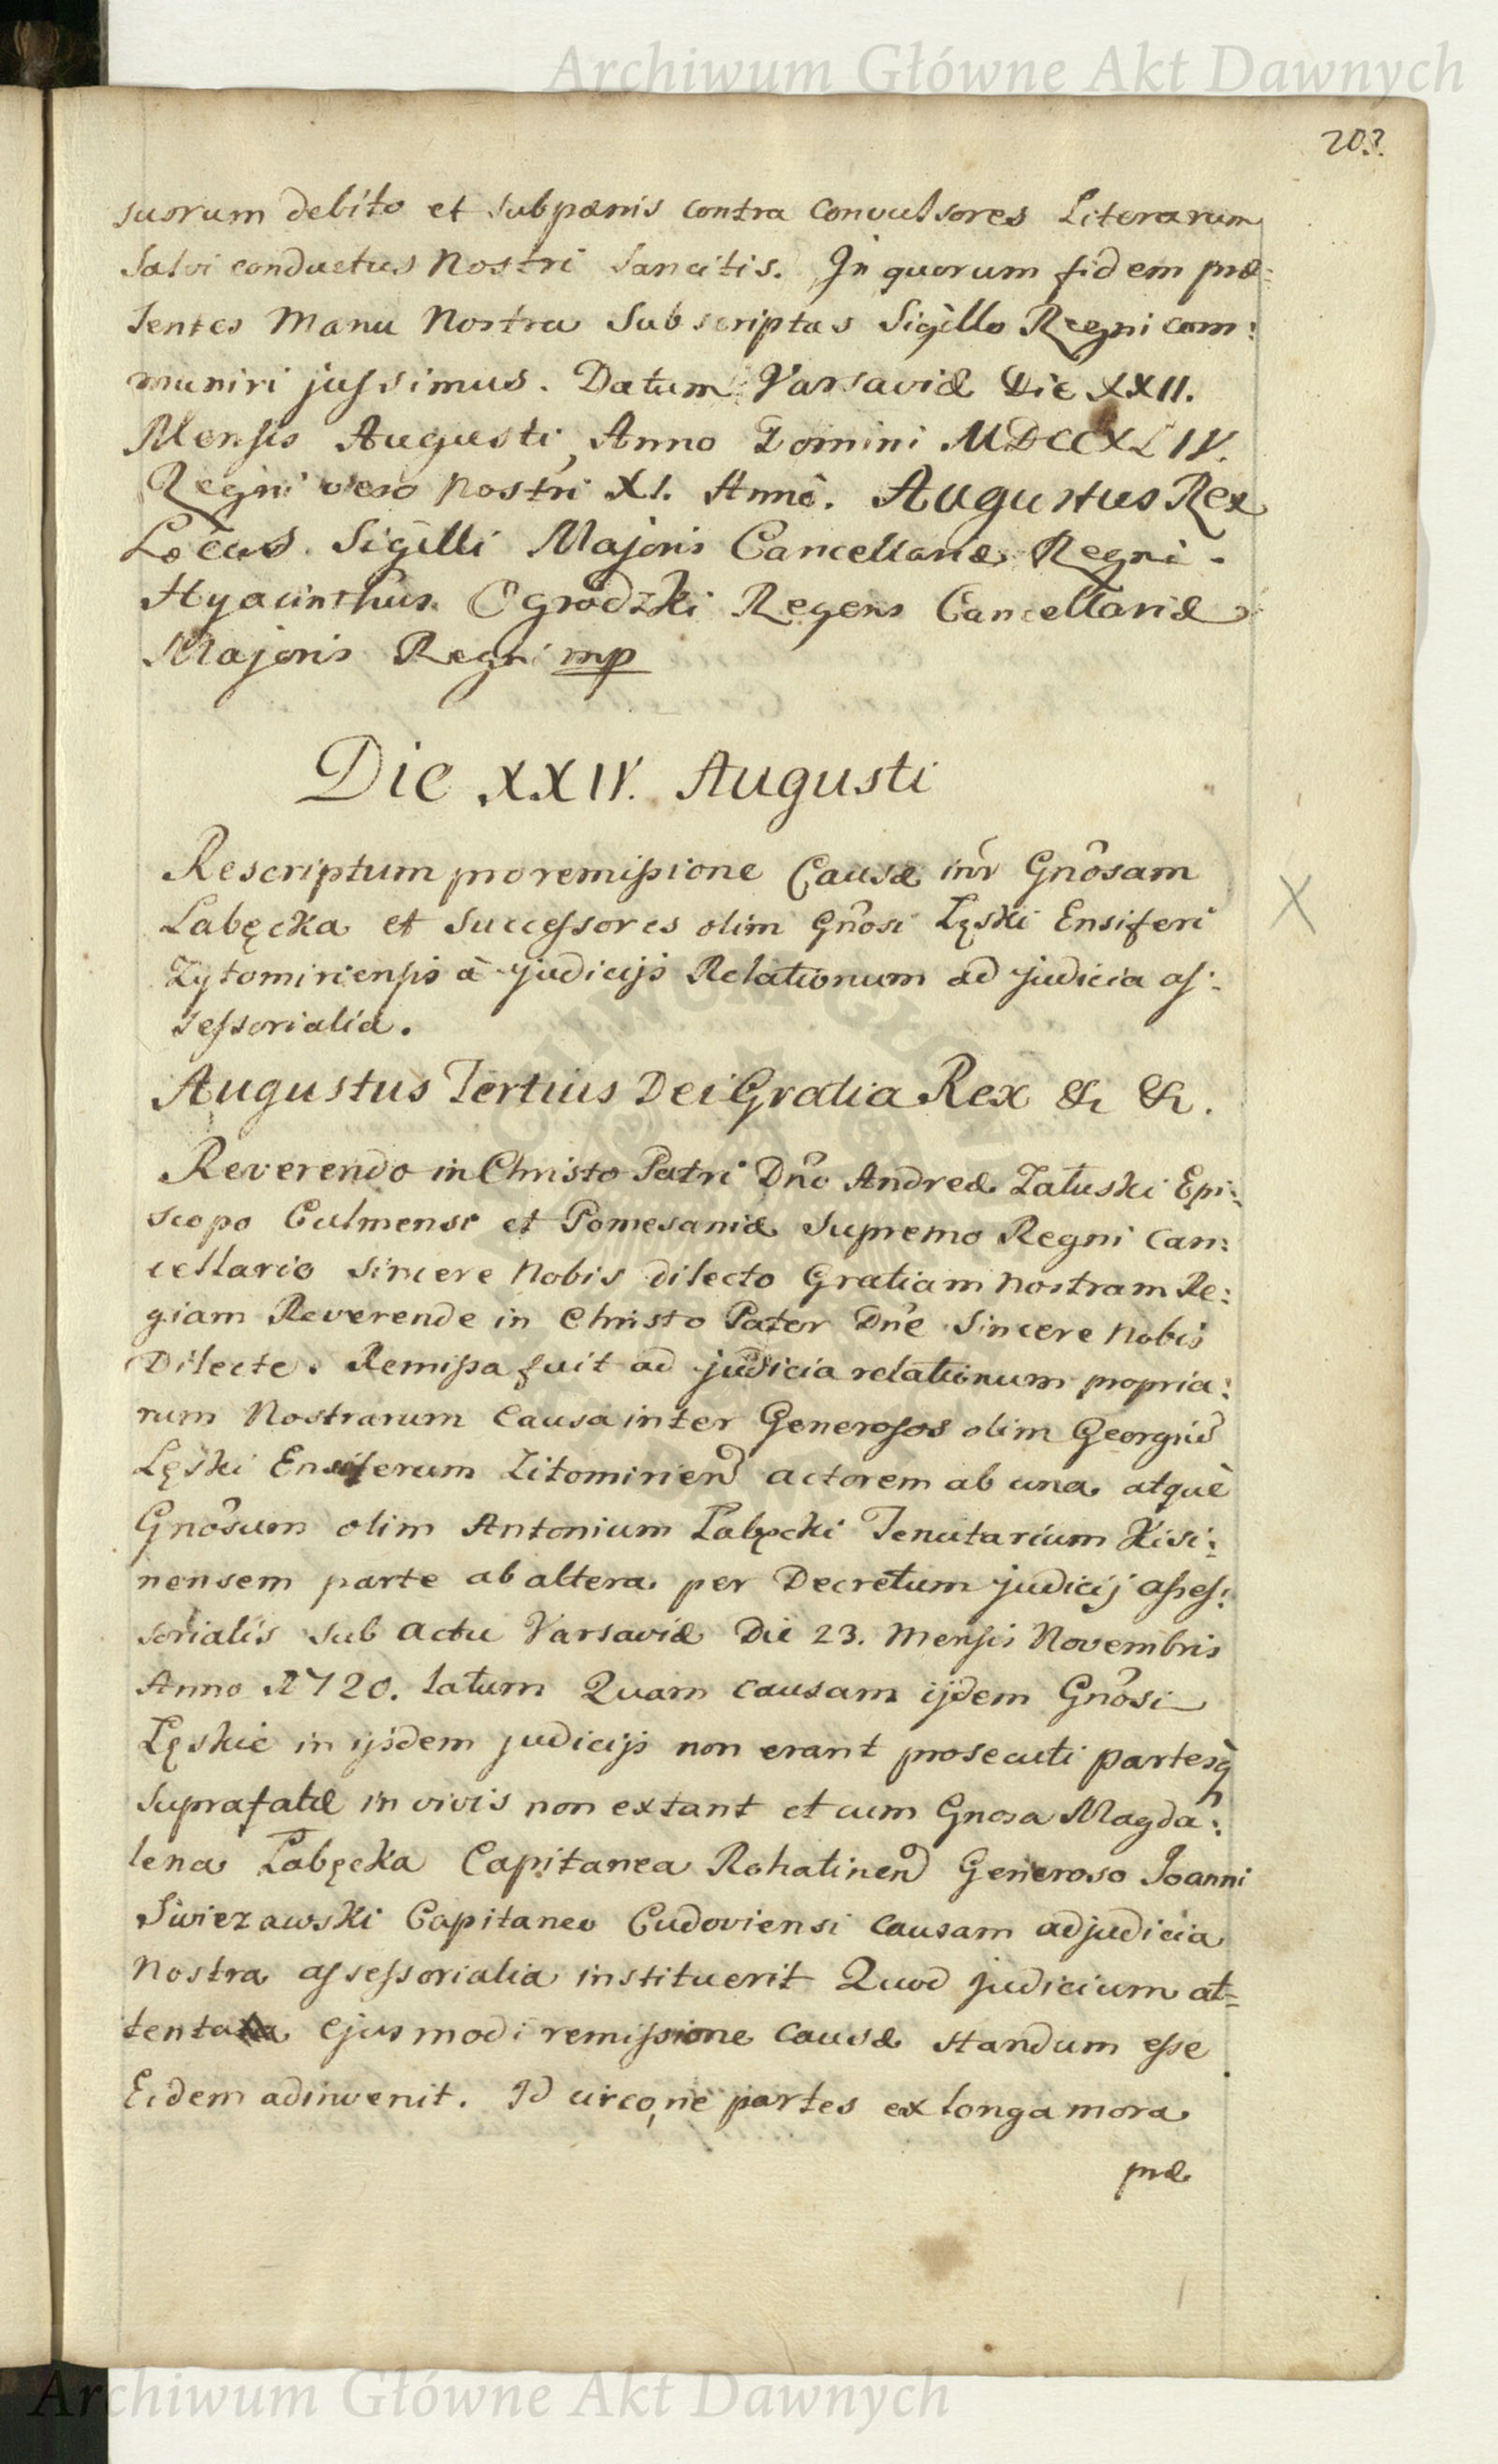 Archiwum Główne Akt Dawnych
203.
suorum debito et subpænis contra convulsores Literarum
Salvi conductus Nostri Sancitis. In quorum fidem præ:
sentes Manu Nostra Subscriptas Sigillo Regni com:
muniri jussimus. Datum Varsaviæ Die XXII.
Mensis Augusti, Anno Domini MDCCXLIV.
Regni vero Nostri XI. Anno. Augustus Rex
Locus Sigilli Majoris Cancellariæ Regni.
Hyacinthus Ogrodzki Regens Cancellariæ
Majoris Regni mp
Die XXIV. Augusti
Rescriptum pro remissione Causæ inr̃ Gnõsam
Łabęcka et Successores olim Gnõsi Łęski Ensiferi
Zytomiriensis à judicijs Relationum ad judicia as:
sessorialia.
Augustus Tertius Dei Gratia Rex & &.
Reverendo in Christo Patri Dnõ Andreæ Załuski Epi:
scopo Culmensi et Pomesaniæ Supremo Regni Can:
cellario Sincere Nobis dilecto Gratiam Nostram Re:
giam Reverende in Christo Pater Dnẽ Sincere Nobis
Dilecte. Remissa fuit ad judicia relationum propria:
rum Nostrarum Causa inter Generosos olim Georgiũ
Łęski Ensiferum Zitomirien̄ actorem ab una atquè
Gnõsum olim Antonium Łabęcki Tenutarium Kisi:
nensem parte ab altera per Decretum judicij asses:
sorialis sub actu Varsaviæ Die 23. Mensis Novembris
Anno 1720. latum Quam causam ijdem Gnõsi
Łęskie in ijsdem judicijs non erant prosecuti partesq̃
suprafatæ in vivis non extant et cum Gnõsa Magda:
lena Łabęcka Capitanea Rohatinen̄ Generoso Joanni
Swiezawski Capitaneo Cudoviensi causam ad judicia
Nostra assessorialia instituerit Quod judicium at=
tenta ejusmodi remissione causæ standum esse
Eidem adinvenit. Id circo, ne partes ex longa mora
præ
Archiwum Główne Akt Dawnych